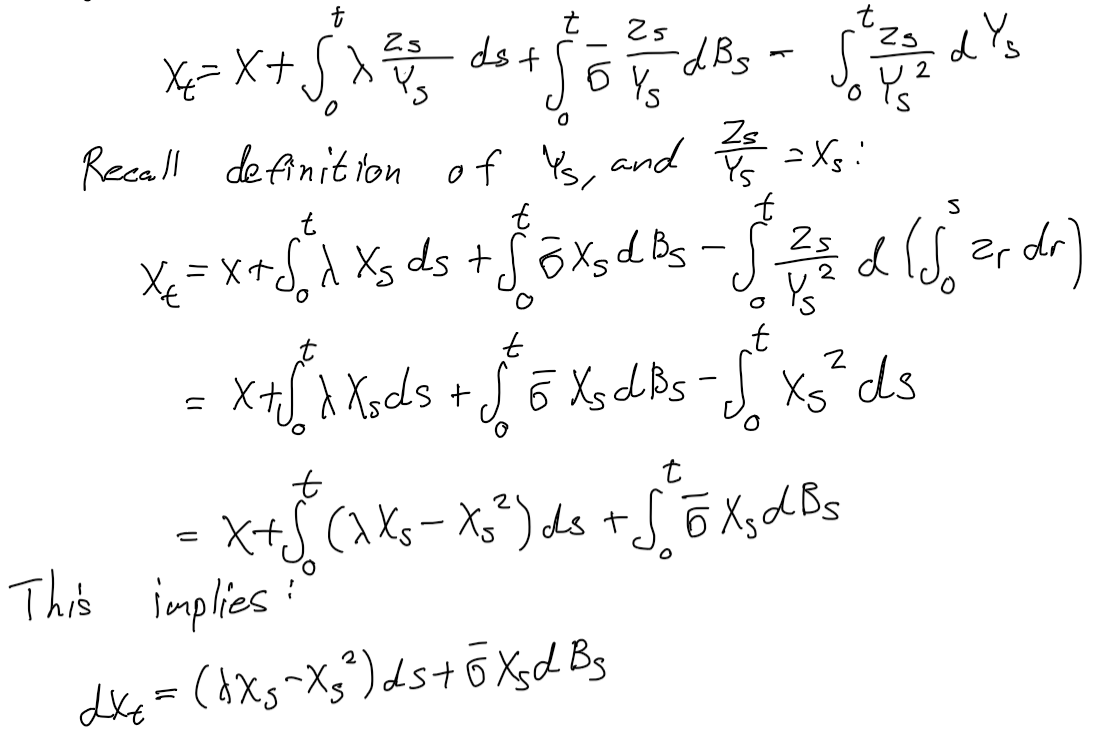 X_t = x + ∫_0^t λ Z_s/Y_s ds + ∫_0^t σ̄ Z_s/Y_s dB_s − ∫_0^t Z_s/Y_s^2 dY_s
Recall definition of Y_s, and Z_s/Y_s = X_s:
X_t = x + ∫_0^t λ X_s ds + ∫_0^t σ̄ X_s dB_s − ∫_0^t Z_s/Y_s^2 d(∫_0^s Z_r dr)
= x + ∫_0^t λ X_s ds + ∫_0^t σ̄ X_s dB_s − ∫_0^t X_s^2 ds
= x + ∫_0^t (λX_s − X_s^2) ds + ∫_0^t σ̄ X_s dB_s
This implies:
dX_t = (λX_s − X_s^2) ds + σ̄ X_s dB_s